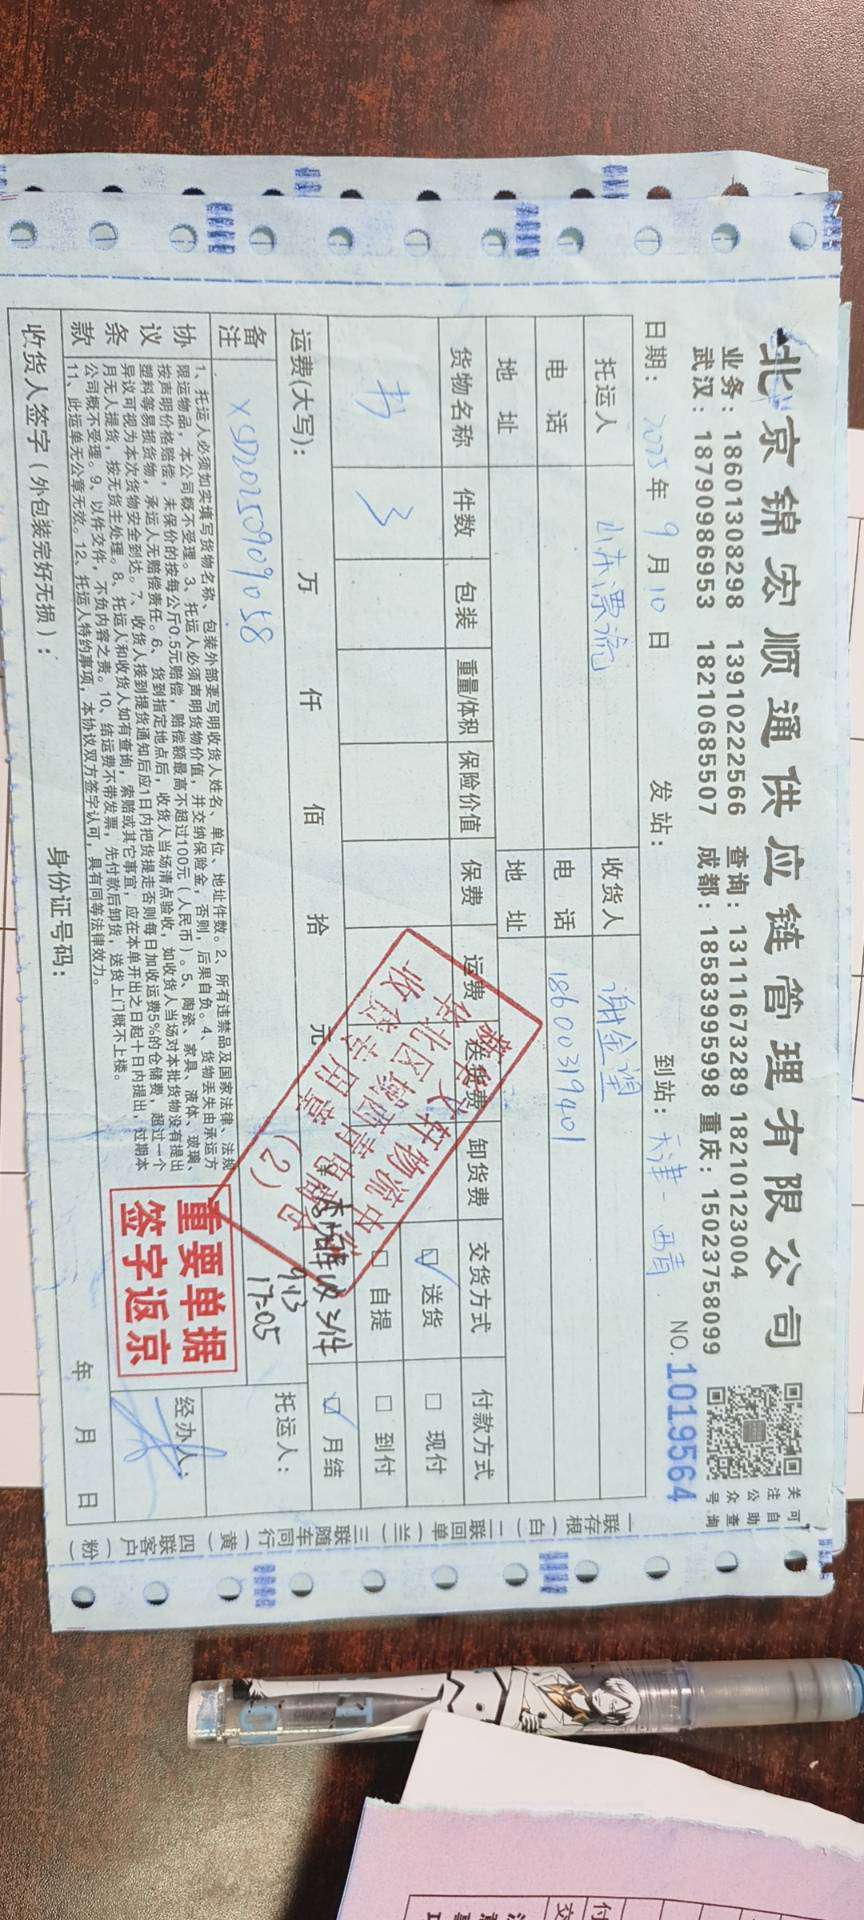 北京锦宏顺通供应链管理有限公司
业务：18601308298 13910222566 查询：13111673289 18210123004
武汉：18790986953 18210685507 成都：18583995998 重庆：15023758099
关注公众号
可自助查询
日期：2025年9月10日 发站： 到站：天津-西青 NO.1019564
托运人 山东漂流 收货人 谢金望
电话 电话 18600319401
地址 地址
货物名称 件数 包装 重量/体积 保险价值 保费 运费 送货费 卸货费 交货方式 付款方式
书 3 ☑送货 □现付
□自提 □到付
运费(大写)： 万 仟 佰 拾 元 ☑月结
收 3件
9.13
17:05
备注 XSD20250909058 托运人：
物流
(2)
协议条款
1、托运人必须如实填写货物名称、包装外部要写明收货人姓名、单位、地址件数。2、所有违禁品及国家法律、法规
限运物品，本公司概不受理。3、托运人必须声明货物价值，并交纳保险金，否则，后果自负。4、货物丢失由承运方
按声明价格赔偿，未保价的按每公斤0.5元赔偿，赔偿额最高不超过100元（人民币）。5、陶瓷、家具、液体、玻璃、
塑料等易损货物，承运人无赔偿责任。6、货到指定地点后，收货人当场清点验收，如收货人当场对本批货物没有提出
异议可视为本次货物安全到达。7、收货人接到提货通知后应1日内把货提走否则每日加收运费5%的仓储费，超过一个
月无人提货，按无货主处理。8、托运人和收货人如有查询，索赔或其它事宜，应在本单开出之日起十日内提出，过期本
公司概不受理。9、以件交件，不负内容之责。10、结运费不带发票，先付款后卸货，送货上门概不上楼。
11、此运单无公章无效。12、托运人特约事项，本协议双方签字认可，具有同等法律效力。
重要单据
签字返京
经办人：
收货人签字（外包装完好无损）： 身份证号码： 年 月 日
一联存根（白） 二联回单（兰） 三联随车同行（黄） 四联客户（粉）